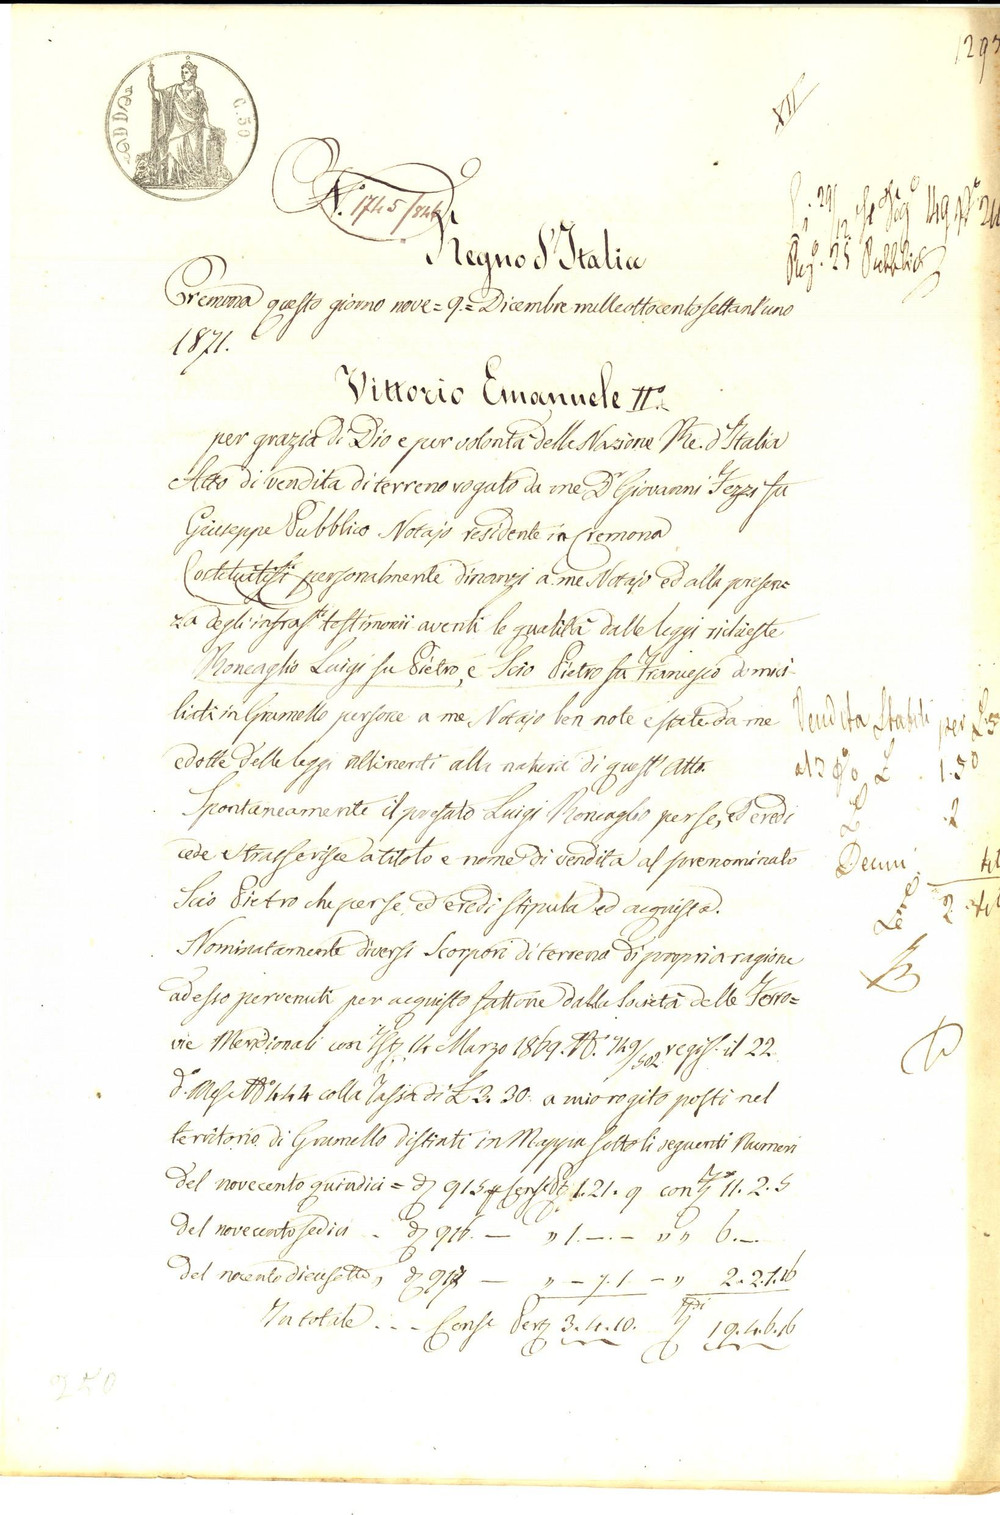 1293
C. 50
XII
N. 1745/846
Regno d'Italia
Reg. 25 Pubblici
Cremona questo giorno nove = 9 = Dicembre mille ottocento settant'uno
1871.
Vittorio Emanuele II°
per grazia di Dio e per volontà della Nazione Re d'Italia
Atto di vendita di terreno rogato da me Dr Giovanni Fezzi fu
Giuseppe Pubblico Notajo residente in Cremona
Costituitisi personalmente dinanzi a me Notajo ed alla presen=
za degli infrasti testimonii aventi le qualità dalle leggi richieste
Roncaglio Luigi fu Pietro, e Scio Pietro fu Francesco domici-
liati in Grumello persone a me Notajo ben note e state da me
edotte delle leggi attinenti alla natura di quest' Atto.
Spontaneamente il prefato Luigi Roncaglio per se, ed eredi
cede e trasferisce a titolo e nome di vendita al prenominato
Scio Pietro che per se, ed eredi stipula ed acquista.
Nominatamente diversi Scorpori di terreno di propria ragione
ad esso pervenuti per acquisto fattone dalla Società delle Ferro=
vie Meridionali con 14 Marzo 1869 N. 749/502 regist. il 22
d° Mese N° 444 colla Tassa di L 3. 30. a mio rogito posti nel
territorio di Grumello distinti in Mappa sotto li seguenti Numeri
Del novecento quindici = 915 Cens Pt 1. 21. 9 con 11. 2. 5
Del novecento sedici - 916 — " 1. — . — " " 6. —
Del novecento diciasette, 917 — " — 7. 1 — " 2. 2. 1. 16
In totale . . . Cens Pert 3. 4. 10. 19. 4. 6. 16
Vendita Stabili per L. 5
al 3 % L . 1. 50
2
Decimi
Lire 2
250